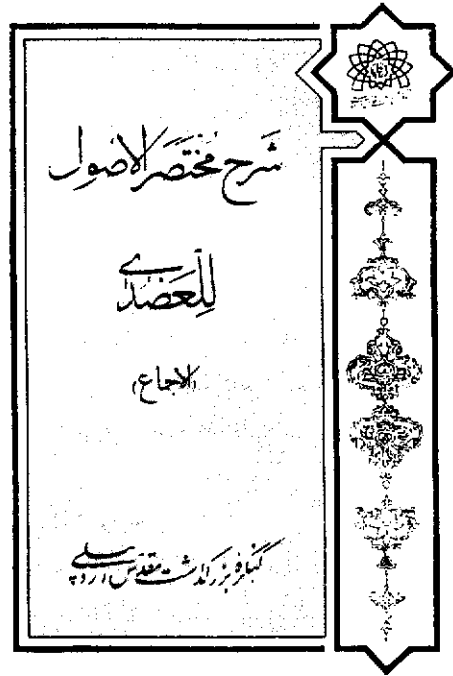 شرح مختصر الاصول
للعضدی
(الاجماع)
کنگره بزرگداشت مقدس اردبیلی